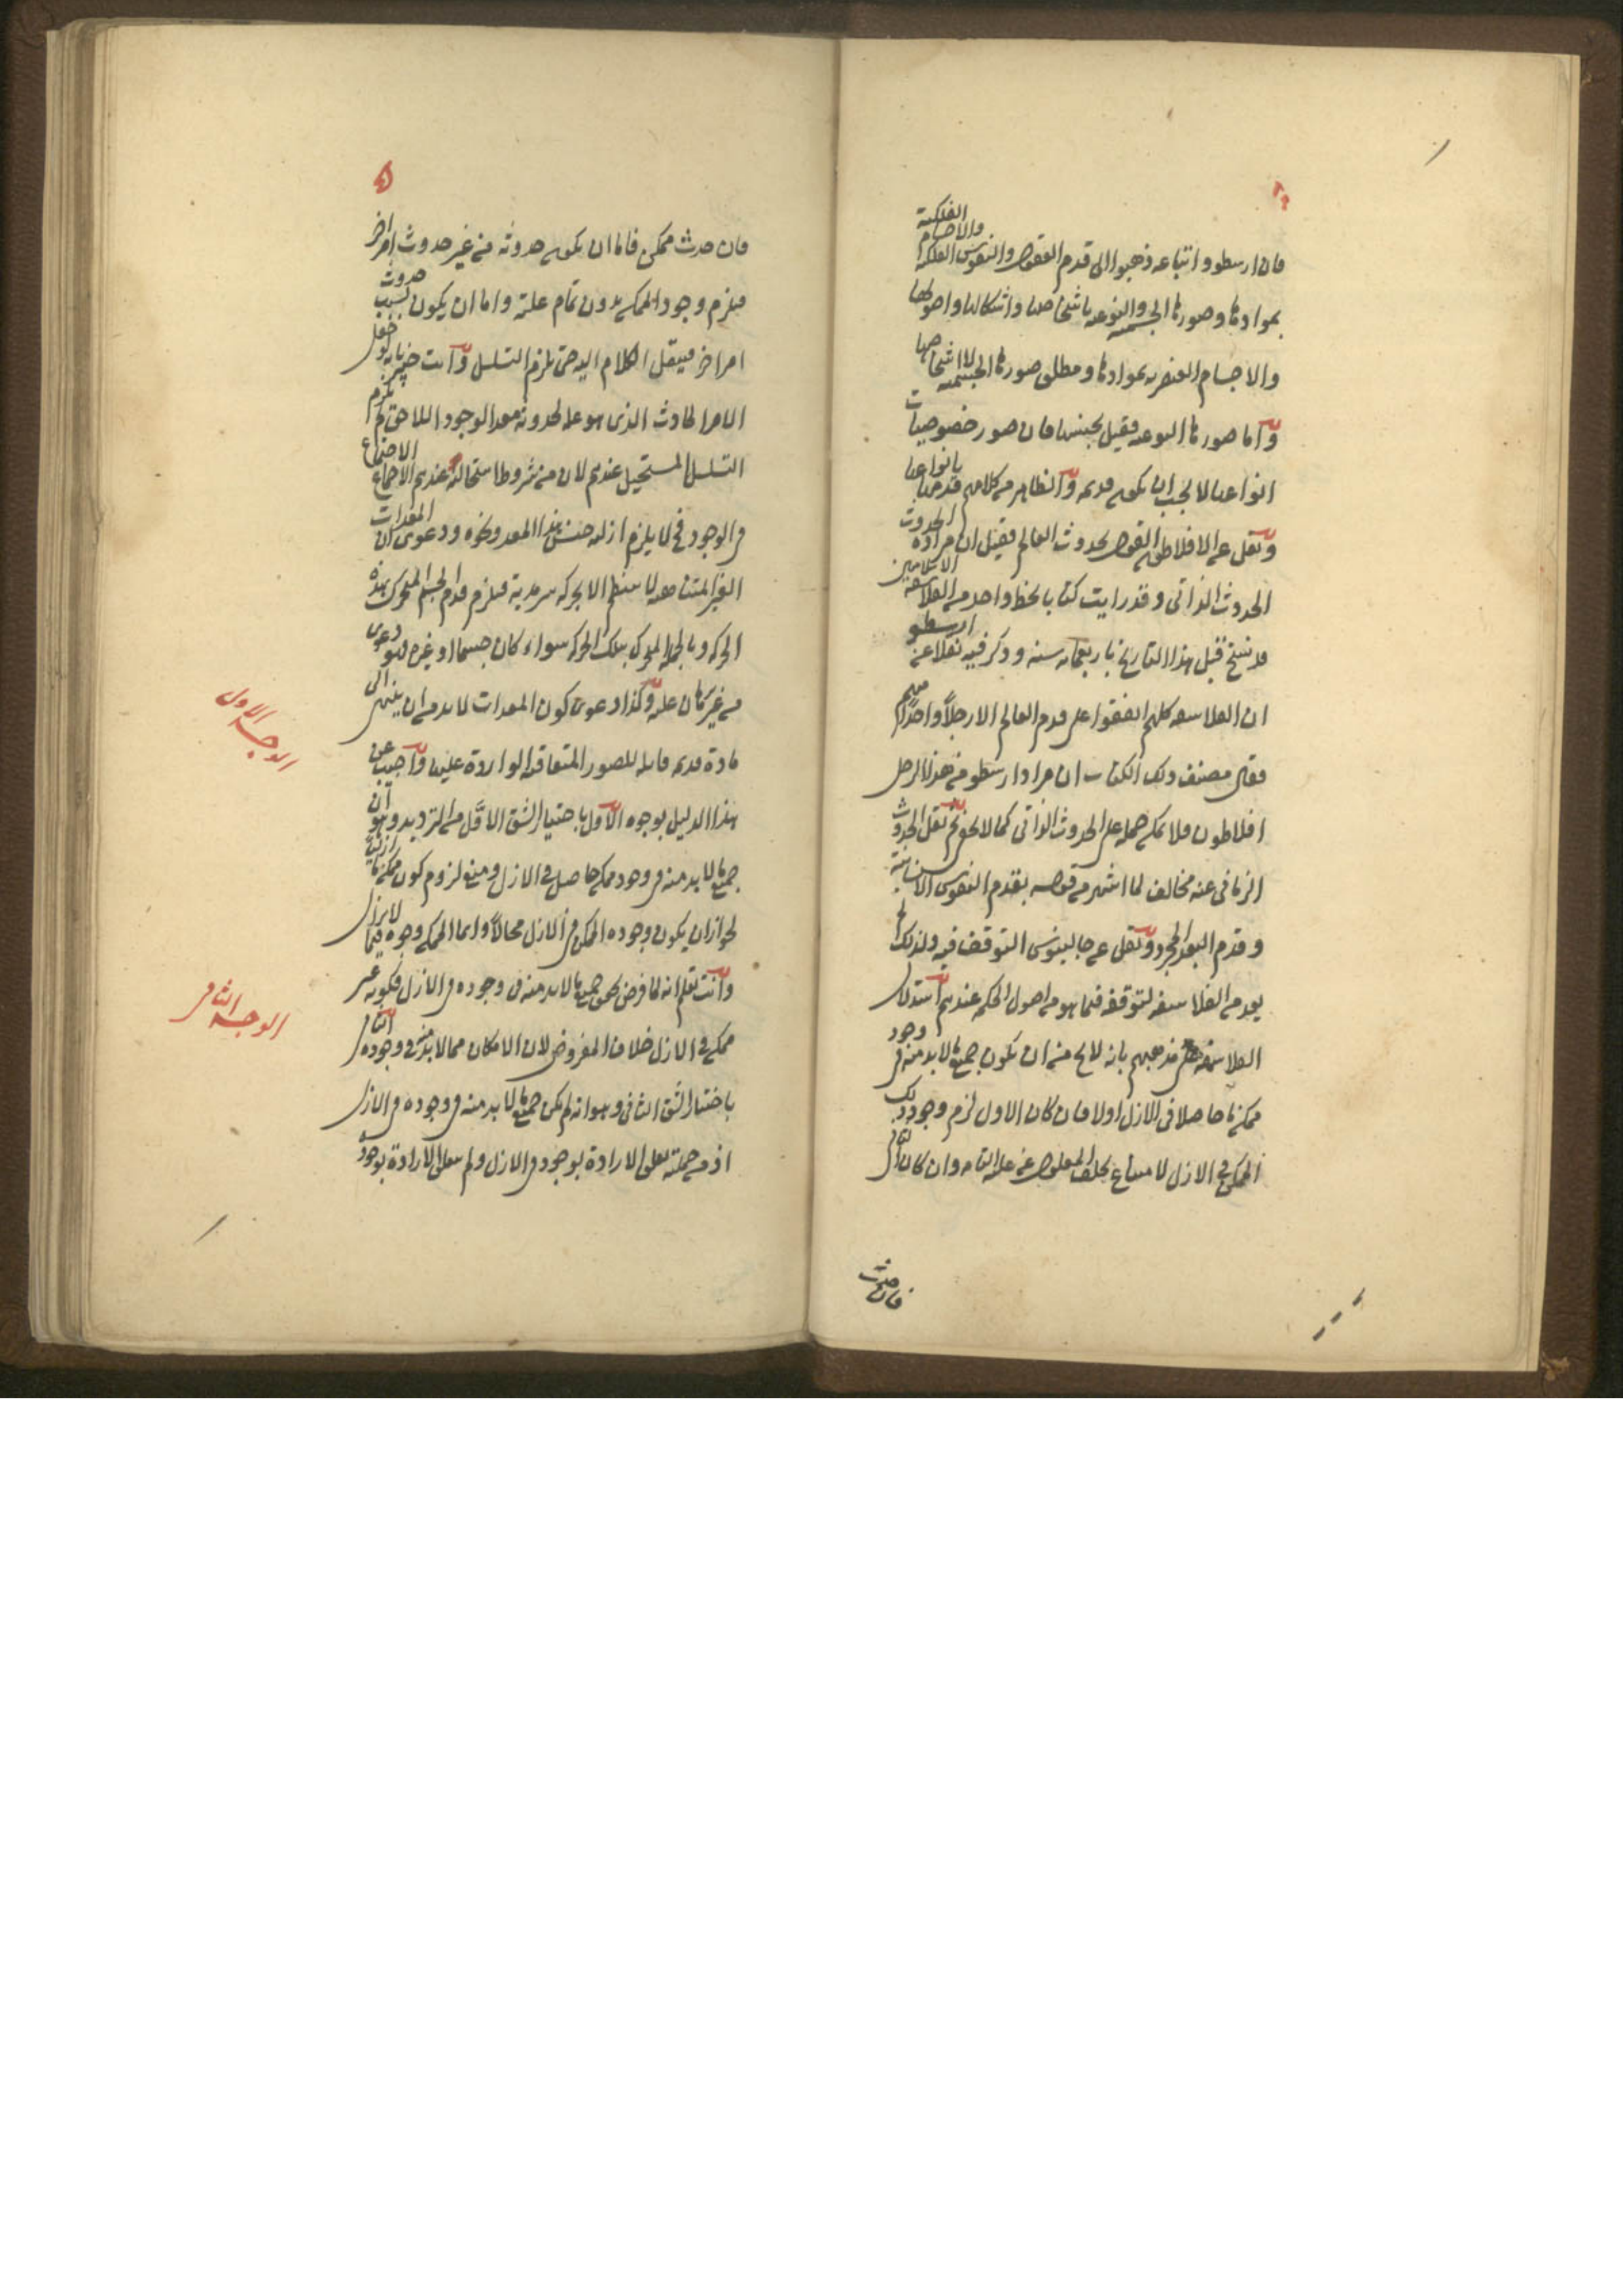 فان ارسطو واتباعه ذهبوا الى قدم العقول والنفوس الفلكية والاجسام الفلكية
بموادها وصورها الجسمية والنوعية باشخاصها واشكالها واضوائها
والاجسام العنصرية بموادها ومطلق صورها الجسمية لا اشخاصها
واما صورها النوعية فقيل بجنسها فان صور خصوصيات
انواعها لا يجب ان يكون قديمة والظاهر من كلامهم قدمها بانواعها
ونقل عن الافلاطون القول بحدوث العالم فقيل ان مراده الحدوث
الحدوث الذاتى وقد رايت كتابا بخط واحد من الفلاسفة الاسلاميين
قد نسخ قبل هذا التاريخ باربعمائة سنة وذكر فيه نقلا عن ارسطو
ان الفلاسفة كلهم اتفقوا على قدم العالم الا رجلا واحدا منهم
فقال مصنف ذلك الكتاب ان مراد ارسطو من هذا الرجل
افلاطون فلا يمكن حمله على الحدوث الذاتى كما لا يخفى نقل الحدوث
الزمانى عنه مخالف لما اشتهر من قوله بقدم النفوس الانسانية
وقدم البعد المجرد ونقل عن جالينوس التوقف فيه ولذلك لم
يعد من الفلاسفة لتوقفه فيما هو من اصول الحكمة عندهم استدل
الفلاسفة على مذهبهم بانه لا يخ من ان يكون جميع ما لا بد منه فى وجود
ممكن ما حاصلا فى الازل اولا فان كان الاول لزم وجود ذلك
الممكن فى الازل لامتناع تخلف المعلول عن علته التامة وان كان الثانى
فان حدث
فان حدث ممكن فاما ان يكون حدوثه من غير حدوث امر اخر
فيلزم وجود الممكن بدون تمام علته واما ان يكون بسبب حدوث
امر اخر فينقل الكلام اليه حتى يلزم التسلسل وانت خبير بانه لو جعل
الامر الحادث الذى هو علة لحدوثه معد الوجود اللاحق لم يلزم
التسلسل المستحيل عندهم لان من شروط استحالته عندهم الاجتماع الاجتماع
فى الوجود فح لا يلزم ازلية جنس هذا المعد ونحوه ودعوى ان المعدات
الغير المتناهية لا ينتظم الا بحركة سرمدية فيلزم قدم الجسم المتحرك بهذه
الحركة وبالجملة المتحرك بتلك الحركة سواء كان جسما او غيره فهو دعوى
من غير برهان عليه وكذا دعوى كون المعدات لا بد من ان ينتهى الى
مادة قديمة قابلة للصور المتعاقبة الواردة عليها واجيب عن
هذا الدليل بوجوه الاول باختيار الشق الاول من الترديد وهو ان
جميع ما لا بد منه فى وجود ممكن حاصل فى الازل ومنع لزوم كون ممكن ما ازليا
لجواز ان يكون وجود الممكن فى الازل محالا وانما الممكن وجوده فيما لا يزال
وانت تعلم انه لما فرض تحقق جميع ما لا بد منه فى وجوده فى الازل فكونه غير
ممكن فى الازل خلاف المفروض لان الامكان مما لا بد منه فى وجوده الثانى
باختيار الشق الثانى وهو انه لم يكن جميع ما لا بد منه فى وجوده فى الازل
اذ من جملته تعلق الارادة بوجوده فى الازل ولم يتعلق الارادة بوجوده
الوجه الاول
الوجه الثانى